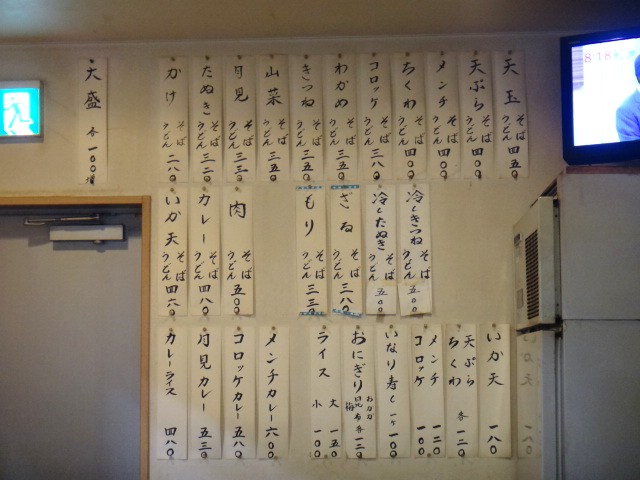 天玉 そば うどん 四五〇
天ぷら そば うどん 四〇〇
メンチ そば うどん 四〇〇
ちくわ そば うどん 四〇〇
コロッケ そば うどん 三八〇
わかめ そば うどん 三五〇
きつね そば うどん 三五〇
山菜 そば うどん 三五〇
月見 そば うどん 三三〇
たぬき そば うどん 三三〇
かけ そば うどん 二八〇
大盛 各 一〇〇増
冷しきつね そば うどん 五〇〇
冷したぬき そば うどん 五〇〇
ざる そば うどん 三八〇
もり そば うどん 三三〇
肉 そば うどん 五〇〇
カレー そば うどん 四八〇
いか天 そば うどん 四六〇
いか天 一八〇
天ぷら ちくわ 各 一二〇
メンチ 一二〇
コロッケ 一〇〇
いなり寿し 一ケ 一〇〇
おにぎり おかか 昆布 梅 各 一二〇
ライス 大 一五〇
小 一〇〇
メンチカレー 六〇〇
コロッケカレー 五八〇
月見カレー 五三〇
カレーライス 四八〇
8:18